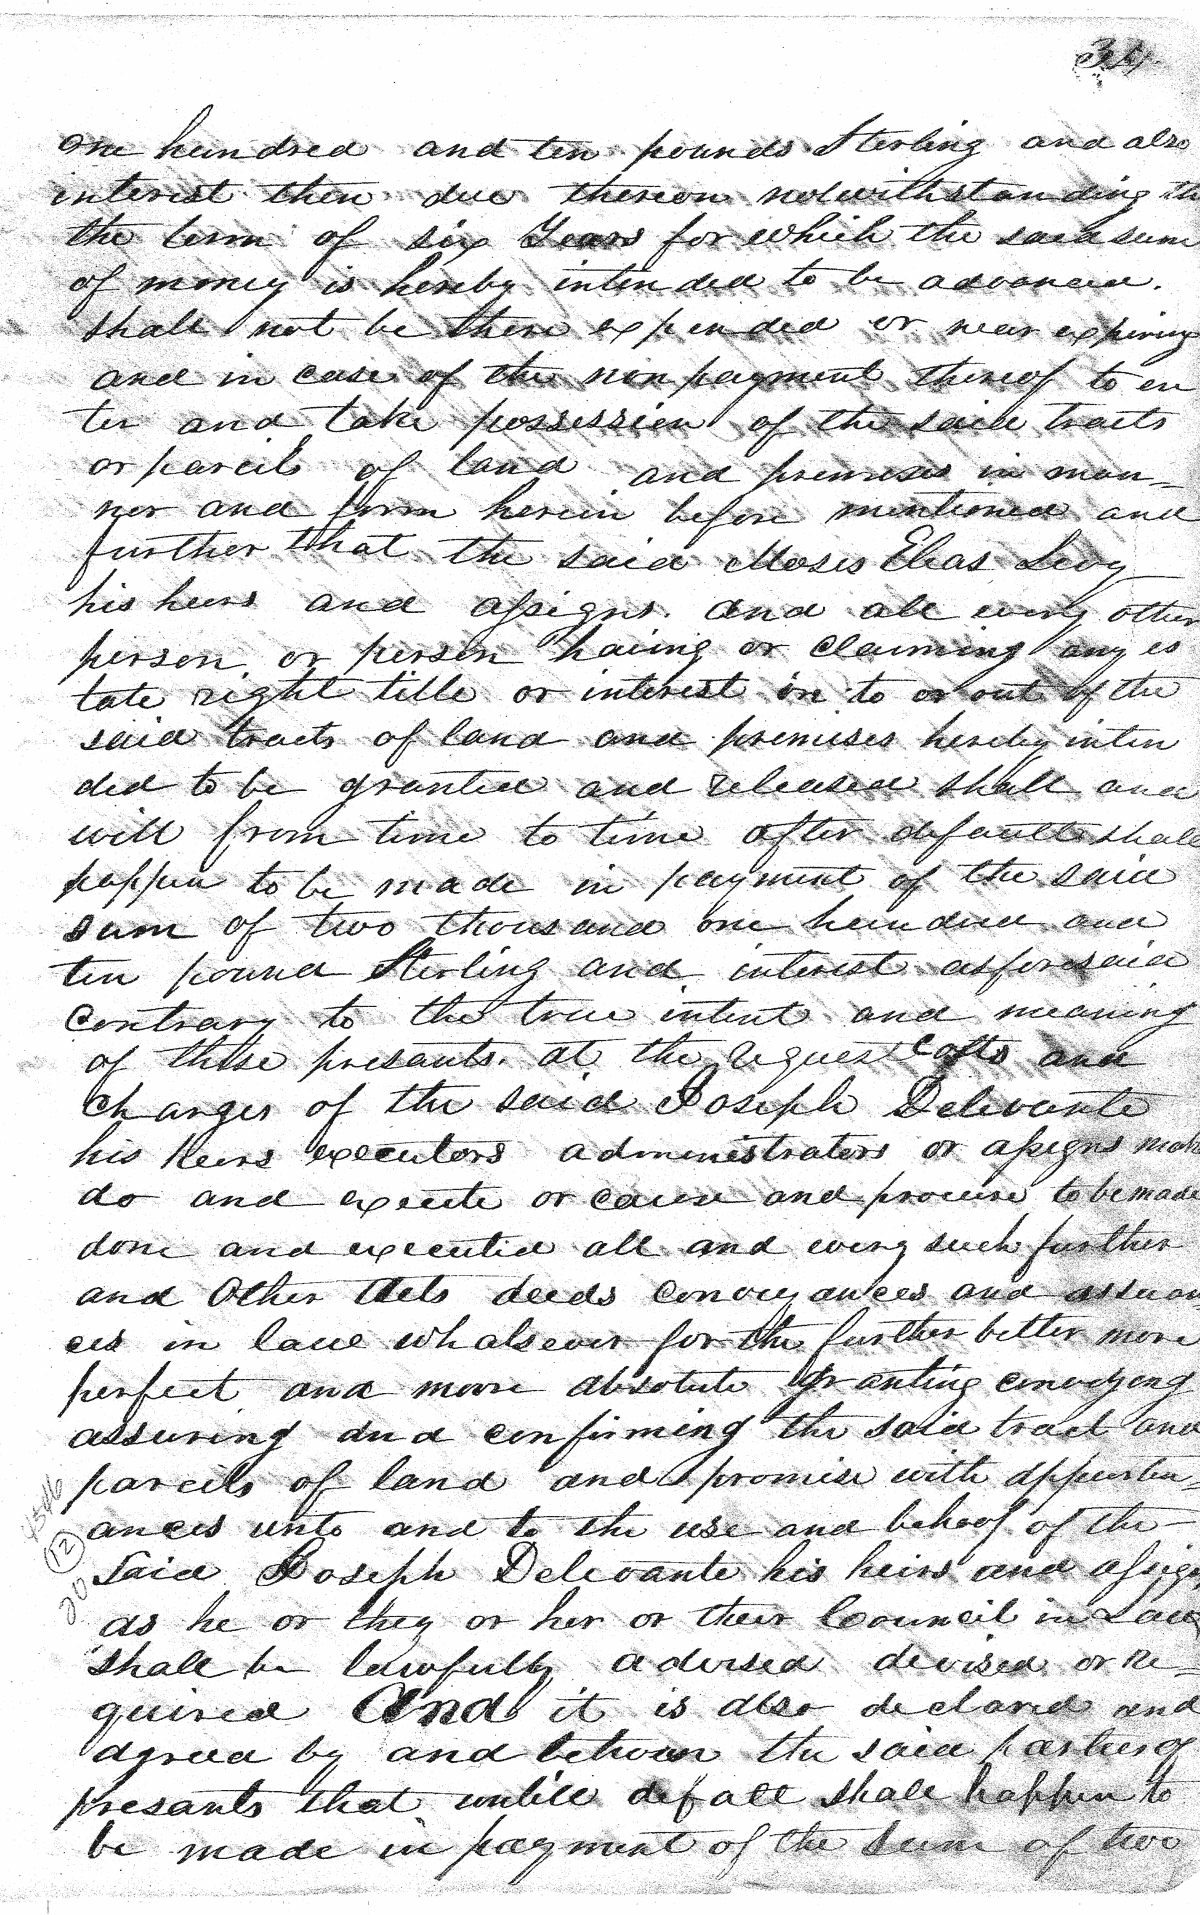 34.
one hundred and ten pounds Sterling and also
interest then due thereon notwithstanding th
the term of six Years for which the said sum
of money is hereby intended to be advanced.
shall not be then expended or near expiring
and in case of the non payment thereof to en
ter and take possession of the said tracts
or parcils of land and premises in man-
ner and form herein before mentioned and
further that the said Moses Elias Levy
his heirs and assigns. and all every other
person or person having or claiming any es
tate right title or interest in to or out of the
said tracts of land and premises hereby inten
ded to be granted and released shall and
will from time to time after default shall
happen to be made in payment of the said
sum of two thousand one hundred and
ten pound Sterling and interest asforesaid
Contrary to the true intent and meaning
of these presants. at the request Costs and
Charges of the said Joseph Delevante
his heirs executors administrators or assigns make
do and execute or cause and procure to be made
done and executed all and every such further
and Other Acts deeds conveyances and assuran
ces in law whatsever for the further better more
perfect and more absolute granting conveying
assuring and confirming the said tract and
parcils of land and promise with appurten-
ances unto and to the use and behoof of the
Said Joseph Delevante his heirs and assigns
as he or they or her or their Council in Law
shall be lawfully advised devised or re-
quired And it is also declared and
agreed by and between the said parties of
presants that untill defalt shall happen to
be made in payment of the sum of two
4546
12
20